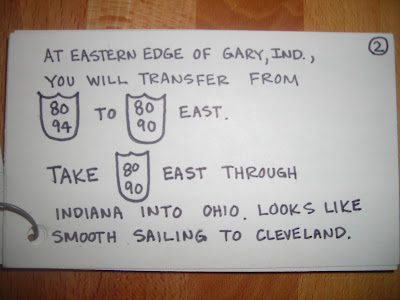 2
AT EASTERN EDGE OF GARY, IND.,
YOU WILL TRANSFER FROM
80 94 TO 80 90 EAST.
TAKE 80 90 EAST THROUGH
INDIANA INTO OHIO. LOOKS LIKE
SMOOTH SAILING TO CLEVELAND.